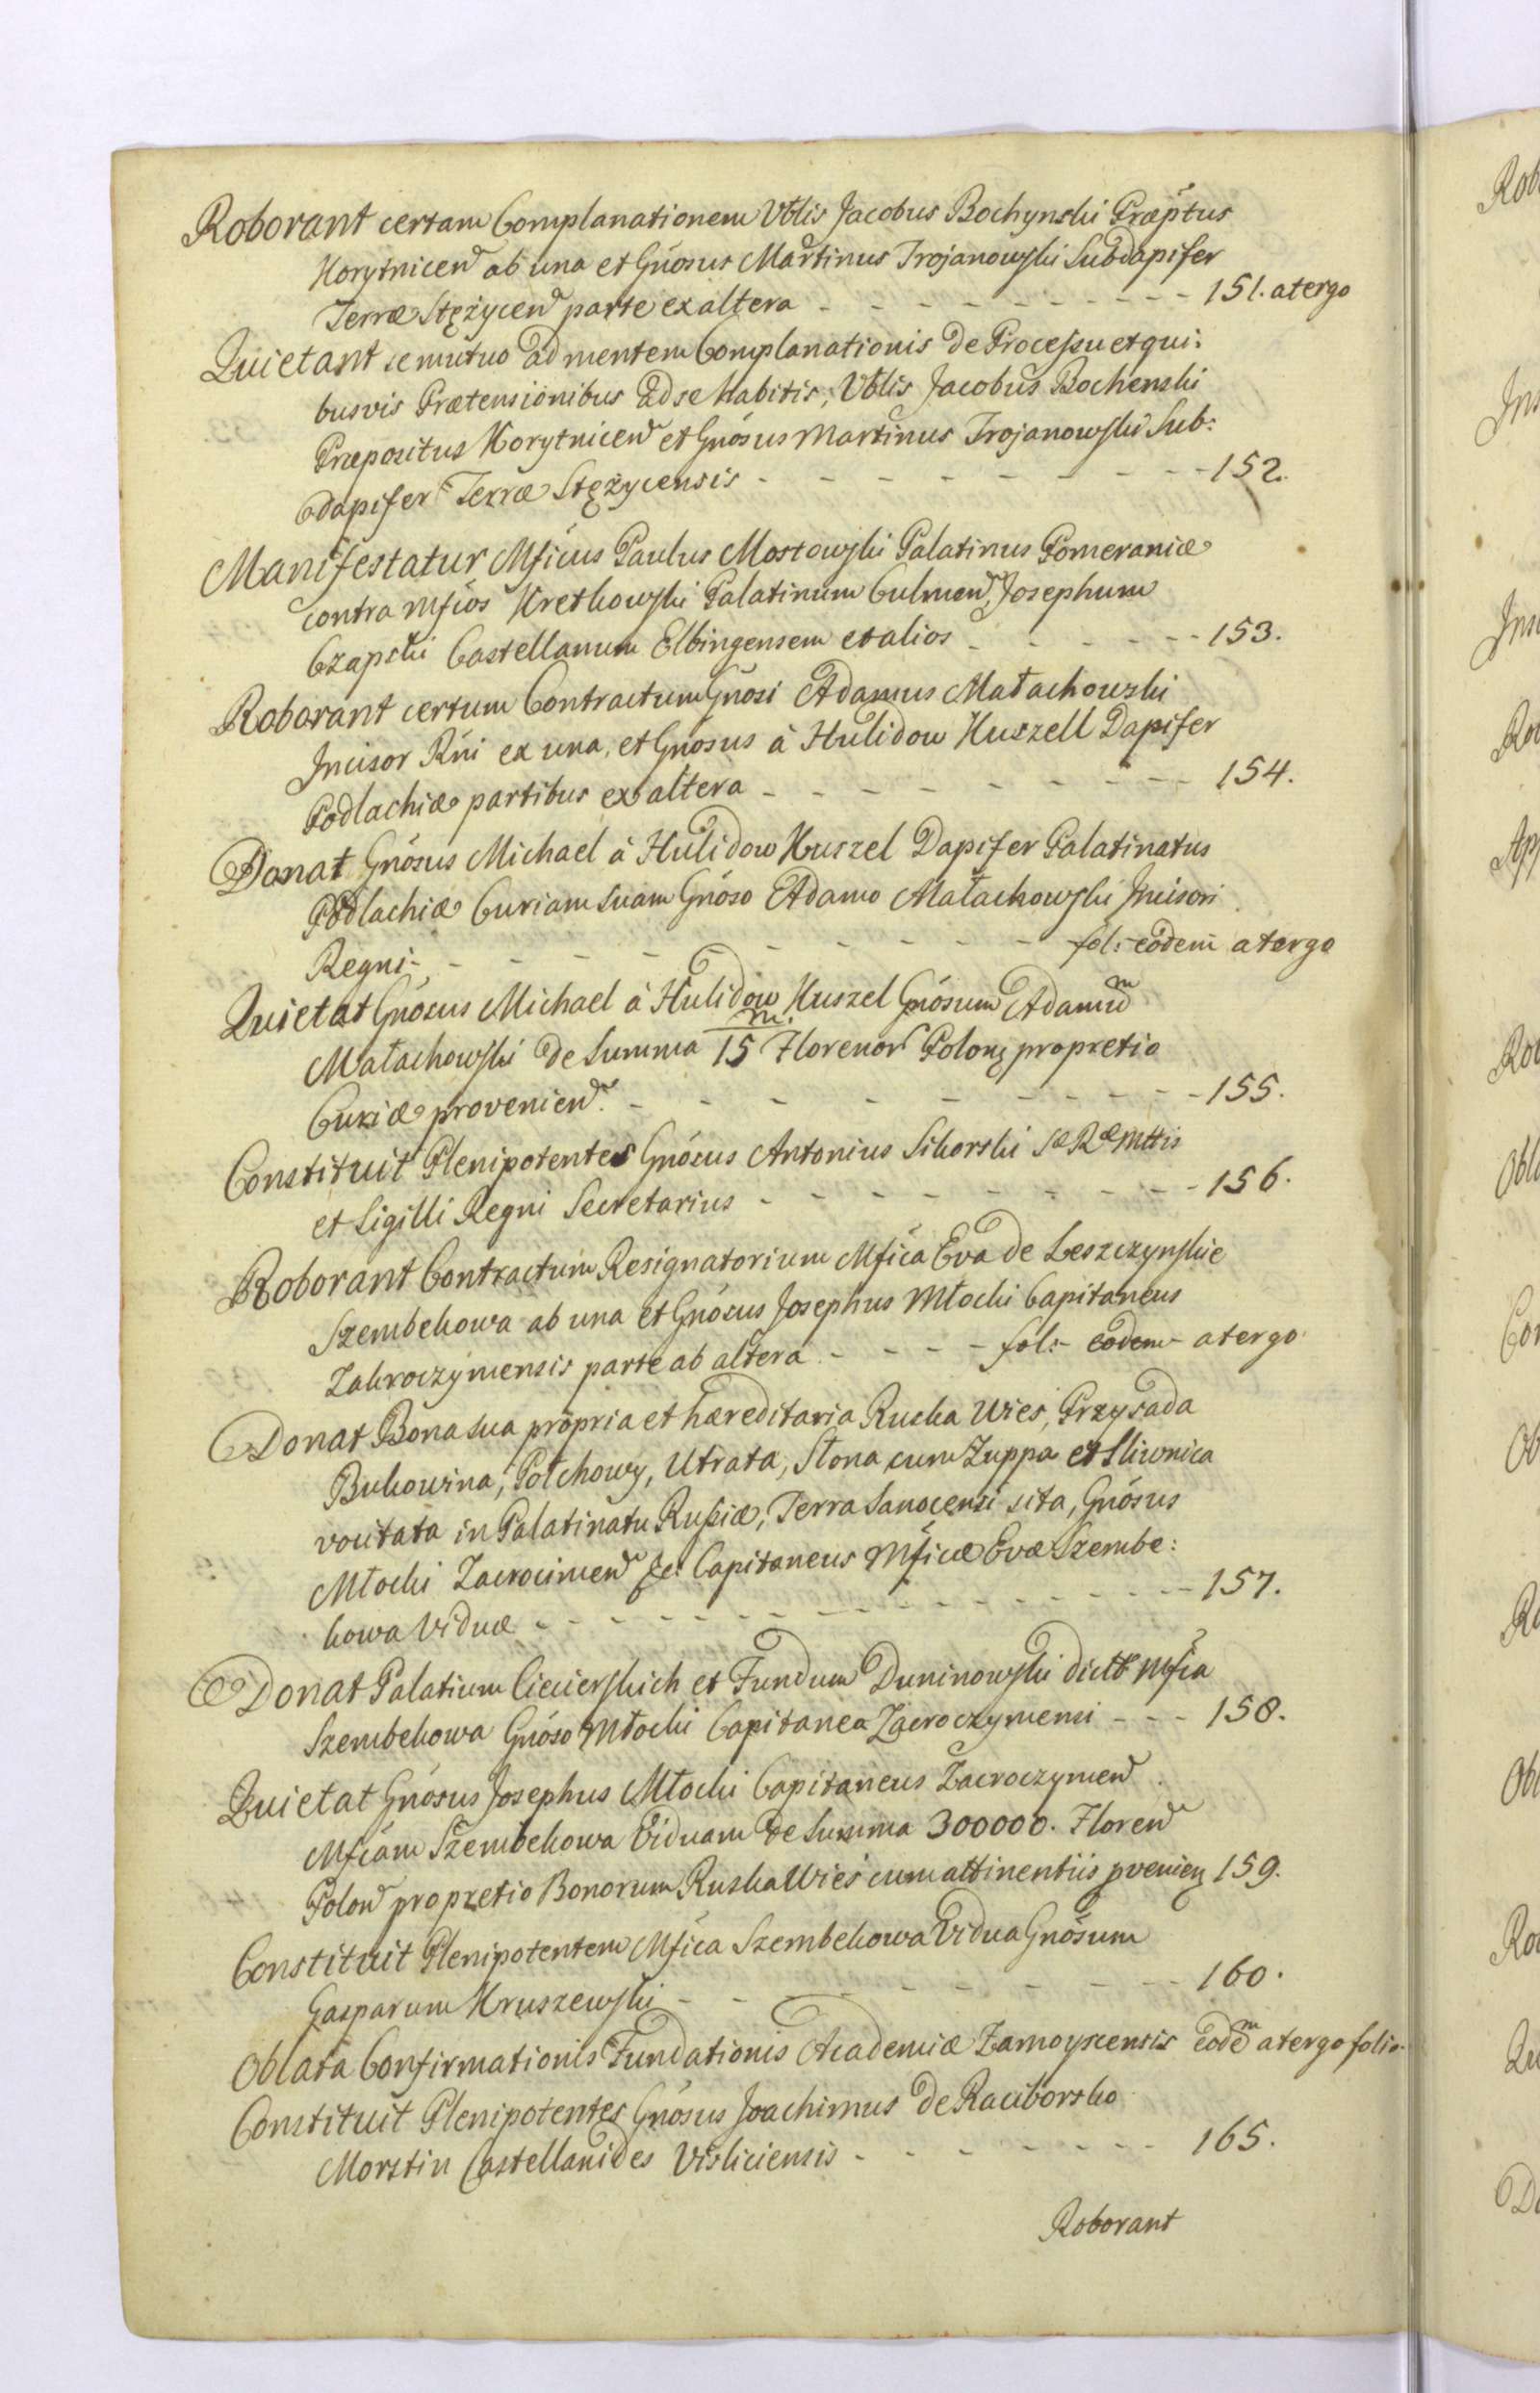 Roborant certam Complanationem Vblis Jacobus Bochynski Præptus
Korytnicen ab una et Gnosus Martinus Trojanowski Subdapifer
Terræ Stężycen parte ex altera - - - - - - - - - 151. atergo
Quietant se mutuo ad mentem Complanationis de Processu et qui:
busvis Prætensionibus ad se habitis; Vblis Jacobus Bochenski
Præpositus Korytnicen et Gnosus Martinus Trojanowski Sub:
dapifer Terræ Stężycensis - - - - - - - - 152.
Manifestatur Mficus Paulus Mostowski Palatinus Pomeraniæ
contra Mficos Kretkowski Palatinum Culmen, Josephum
Czapski Castellanum Elbingensem et alios - - - - - 153.
Roborant certum Contractum Gnosi Adamus Małachowski
Incisor Rni ex una, et Gnosus à Hulidow Kuszell Dapifer
Podlachiæ partibus ex altera - - - - - - - - 154.
Donat Gnosus Michael à Hulidow Kuszel Dapifer Palatinatus
Podlachiæ Curiam suam Gnoso Adamo Małachowski Incisori
Regni - - - - - - - - - - fol: eodem atergo
Quietat Gnosus Michael à Hulidow Kuszel Gnosum Adamum
Małachowski de Summa 15 m. Florenor Polong pro pretio
Curiæ provenien. - - - - - - - - - - 155.
Constituit Plenipotentes Gnosus Antonius Sikorski Sæ Ræ Mttis
et Sigilli Regni Secretarius - - - - - - - - 156.
Roborant Contractum Resignatorium Mfica Eva de Leszczynskie
Szembekowa ab una et Gnosus Josephus Młocki Capitaneus
Zakroczymensis parte ab altera - - - - fol: eodem - atergo
Donat Bona sua propria et hæreditaria Ruska Wieś, Przysada
Bukowina, Połchowy, Utrata, Słona cum Zuppa et Sliwnica
vocitata in Palatinatu Russiæ, Terra Sanocensi sita, Gnosus
Młocki Zacrocimen &c: Capitaneus Mficæ Evæ Szembe:
kowa Viduæ - - - - - - - - - - - - 157.
Donat Palatium Ciecierskich et Fundum Duninowski dictt Mfica
Szembekowa Gnoso Młocki Capitanea Zacroczymensi - - - 158.
Quietat Gnosus Josephus Młocki Capitaneus Zacroczymen
Mficam Szembekowa Viduam de Summa 300000. Floren
Polon pro pretio Bonorum Ruska Wieś cum attinentiis pvenien 159.
Constituit Plenipotentem Mfica Szembekowa Vidua Gnosum
Gasparum Kruszewski - - - - - - - - - 160.
Oblata Confirmationis Fundationis Academiæ Zamoyscensis eodem atergo folio.
Constituit Plenipotentes Gnosus Joachimus de Raciborsko
Morstin Castellanides Visliciensis - - - - - - - - 165.
Roborant